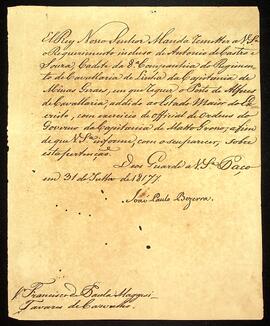 El Rey Nosso Senhor Manda remetter a V. S.ª
o Requerimento incluso de Antonio de Castro e
Souza, Cadete da 8.ª Companhia do Regimen-
to de Cavallaria de Linha da Capitania de
Minas Geraes, em que requer o Posto de Alferes
de Cavallaria, addido ao Estado Maior do Ex-
ercito, com exercicio de Official de Ordens do
Governo da Capitania de Matto Grosso, a fim
de que V. S.ª informe, com o seu parecer, sobre
esta pertenção.
Deos Guarde a V. S.ª Paço
em 31 de de 1817
João Paulo Bezerra.
Francisco de Paula Maggessi
Tavares de Carvalho.